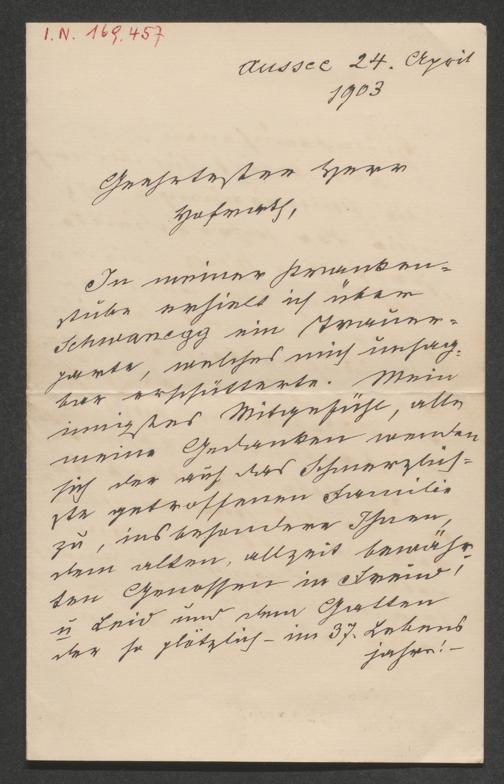 I.N. 169.457
Aussee 24. April
1903
Geehrtester Herr
Hofrath,
In meiner Kranken-
stube erhielt ich über
Schwanegg ein Trauer-
parte, welches mich unsag-
bar erschütterte. Mein
innigstes Mitgefühl, alle
meine Gedanken wenden
sich der auf das Schmerzlich-
ste getroffenen Familie
zu, insbesondere Ihnen,
dem alten, allzeit bewähr-
ten Genossen in Freud'
u Leid und dem Gatten
der so plötzlich – im 37. Lebens
jahre! –